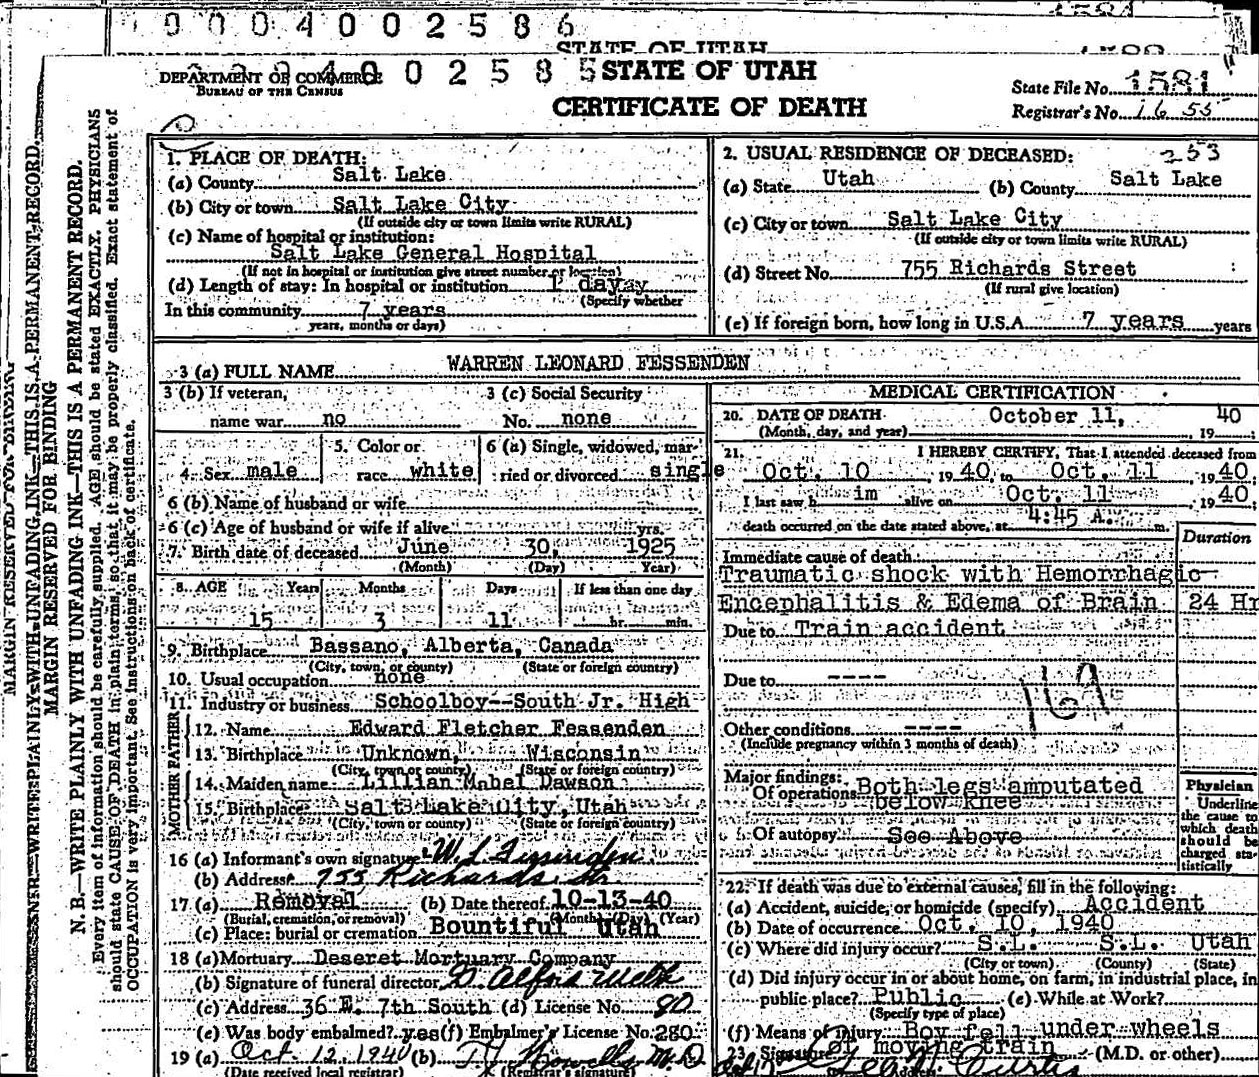 9 0 0 4 0 0 2 5 8 6
STATE OF UTAH
DEPARTMENT OF COMMERCE
BUREAU OF THE CENSUS
0 0 2 5 8 5
STATE OF UTAH
CERTIFICATE OF DEATH
State File No. 1581
Registrar's No. 1655
MARGIN RESERVED FOR BINDING
WRITE PLAINLY WITH UNFADING INK—THIS IS A PERMANENT RECORD.
MARGIN RESERVED FOR BINDING
N. B.—WRITE PLAINLY WITH UNFADING INK—THIS IS A PERMANENT RECORD.
Every item of information should be carefully supplied. AGE should be stated EXACTLY. PHYSICIANS
should state CAUSE OF DEATH in plain terms, so that it may be properly classified. Exact statement of
OCCUPATION is very important. See instructions on back of certificate.
1. PLACE OF DEATH:
(a) County Salt Lake
(b) City or town Salt Lake City
(If outside city or town limits write RURAL)
(c) Name of hospital or institution:
Salt Lake General Hospital
(If not in hospital or institution give street number or location)
(d) Length of stay: In hospital or institution 1 day
(Specify whether
In this community 7 years
years, months or days)
2. USUAL RESIDENCE OF DECEASED: 253
(a) State Utah (b) County Salt Lake
(c) City or town Salt Lake City
(If outside city or town limits write RURAL)
(d) Street No. 755 Richards Street
(If rural give location)
(e) If foreign born, how long in U.S.A. 7 years years
3 (a) FULL NAME WARREN LEONARD FESSENDEN
3 (b) If veteran,
name war no
3 (c) Social Security
No. none
4. Sex male
5. Color or
race white
6 (a) Single, widowed, mar-
ried or divorced single
6 (b) Name of husband or wife
6 (c) Age of husband or wife if alive yrs.
7. Birth date of deceased June 30, 1925
(Month) (Day) Year)
8. AGE Years Months Days If less than one day
15 3 11 hr. min.
9. Birthplace Bassano, Alberta, Canada
(City, town, or county) (State or foreign country)
10. Usual occupation none
11. Industry or business Schoolboy--South Jr. High
FATHER
12. Name Edward Fletcher Fessenden
13. Birthplace Unknown, Wisconsin
(City, town or county) (State or foreign country)
MOTHER
14. Maiden name Lillian Mabel Dawson
15. Birthplace Salt Lake City, Utah
(City, town or county) (State or foreign country)
16 (a) Informant's own signature W. L. Fessenden
(b) Address 755 Richards Str
17 (a) Removal (b) Date thereof 10-13-40
(Burial, cremation, or removal) (Month) (Day) (Year)
(c) Place: burial or cremation Bountiful Utah
18 (a) Mortuary Deseret Mortuary Company
(b) Signature of funeral director
(c) Address 36 E. 7th South (d) License No. 80
(e) Was body embalmed? yes (f) Embalmer's License No. 280
19 (a) Oct. 12, 1940 (b) M. D
(Date received local registrar) (Registrar's signature)
MEDICAL CERTIFICATION
20. DATE OF DEATH October 11, 40
(Month, day, and year) , 19
21. I HEREBY CERTIFY, That I attended deceased from
Oct. 10 , 1940, to Oct. 11 , 1940,
I last saw h im alive on Oct. 11 , 1940,
death occurred on the date stated above, at 4:45 A. m.
Duration
Immediate cause of death
Traumatic shock with Hemorrhagic
Encephalitis & Edema of Brain 24 Hr
Due to Train accident
Due to ----
169
Other conditions ----
(Include pregnancy within 3 months of death)
Major findings:
Of operations Both legs amputated
below knee
Of autopsy See Above
Physician
Underline
the cause to
which death
should be
charged sta-
tistically
22. If death was due to external causes, fill in the following:
(a) Accident, suicide, or homicide (specify) Accident
(b) Date of occurrence Oct. 10, 1940
(c) Where did injury occur? S.L. S.L. Utah
(City or town) (County) (State)
(d) Did injury occur in or about home, on farm, in industrial place, in
public place? Public (e) While at Work?
(Specify type of place)
(f) Means of Injury Boy fell under wheels
of moving train
23. Signature Curtis (M.D. or other)